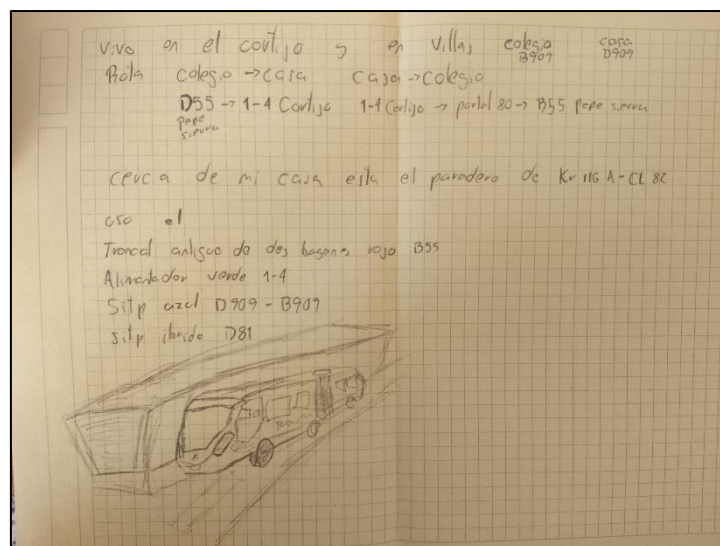 vivo en el cortijo y en villas colegio B909 casa D909
Ruta colegio → casa casa → colegio
D55 → 1-4 Cortijo 1-4 Cortijo → portal 80 → B55 pepe sierra
pepe sierra
cerca de mi casa esta el paradero de Kr 116 A - CL 82
uso el
Troncal antiguo de dos bagones rojo B55
Alimentador verde 1-4
Sitp azul D909 - B909
sitp ibrido D81